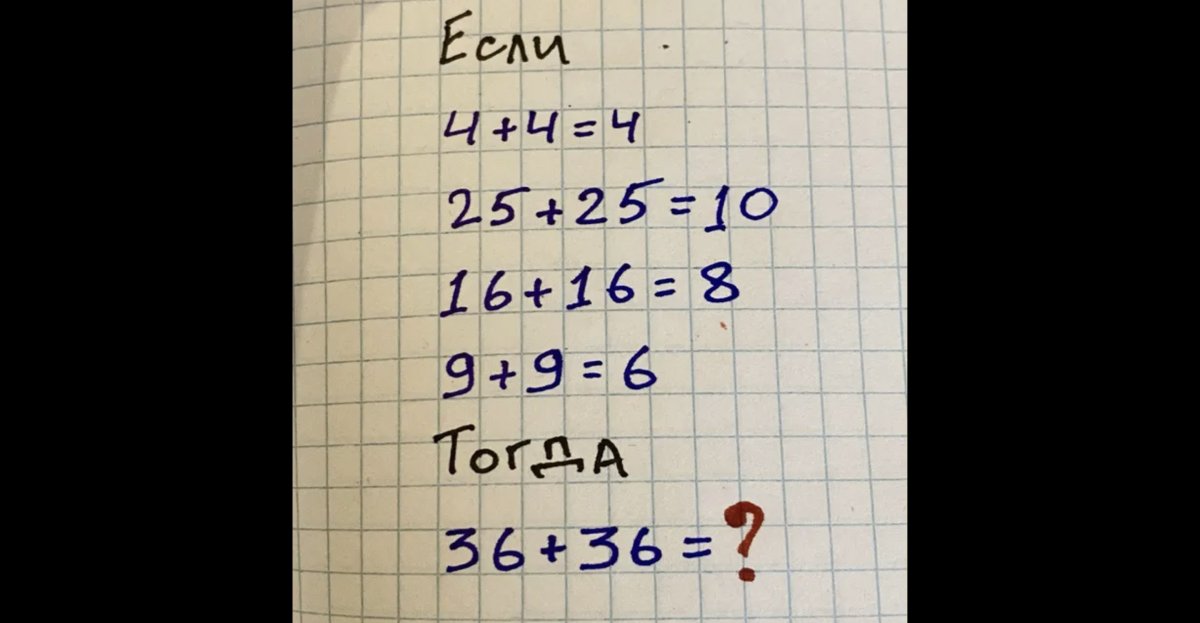 Если
4+4=4
25+25=10
16+16=8
9+9=6
Тогда
36+36=?